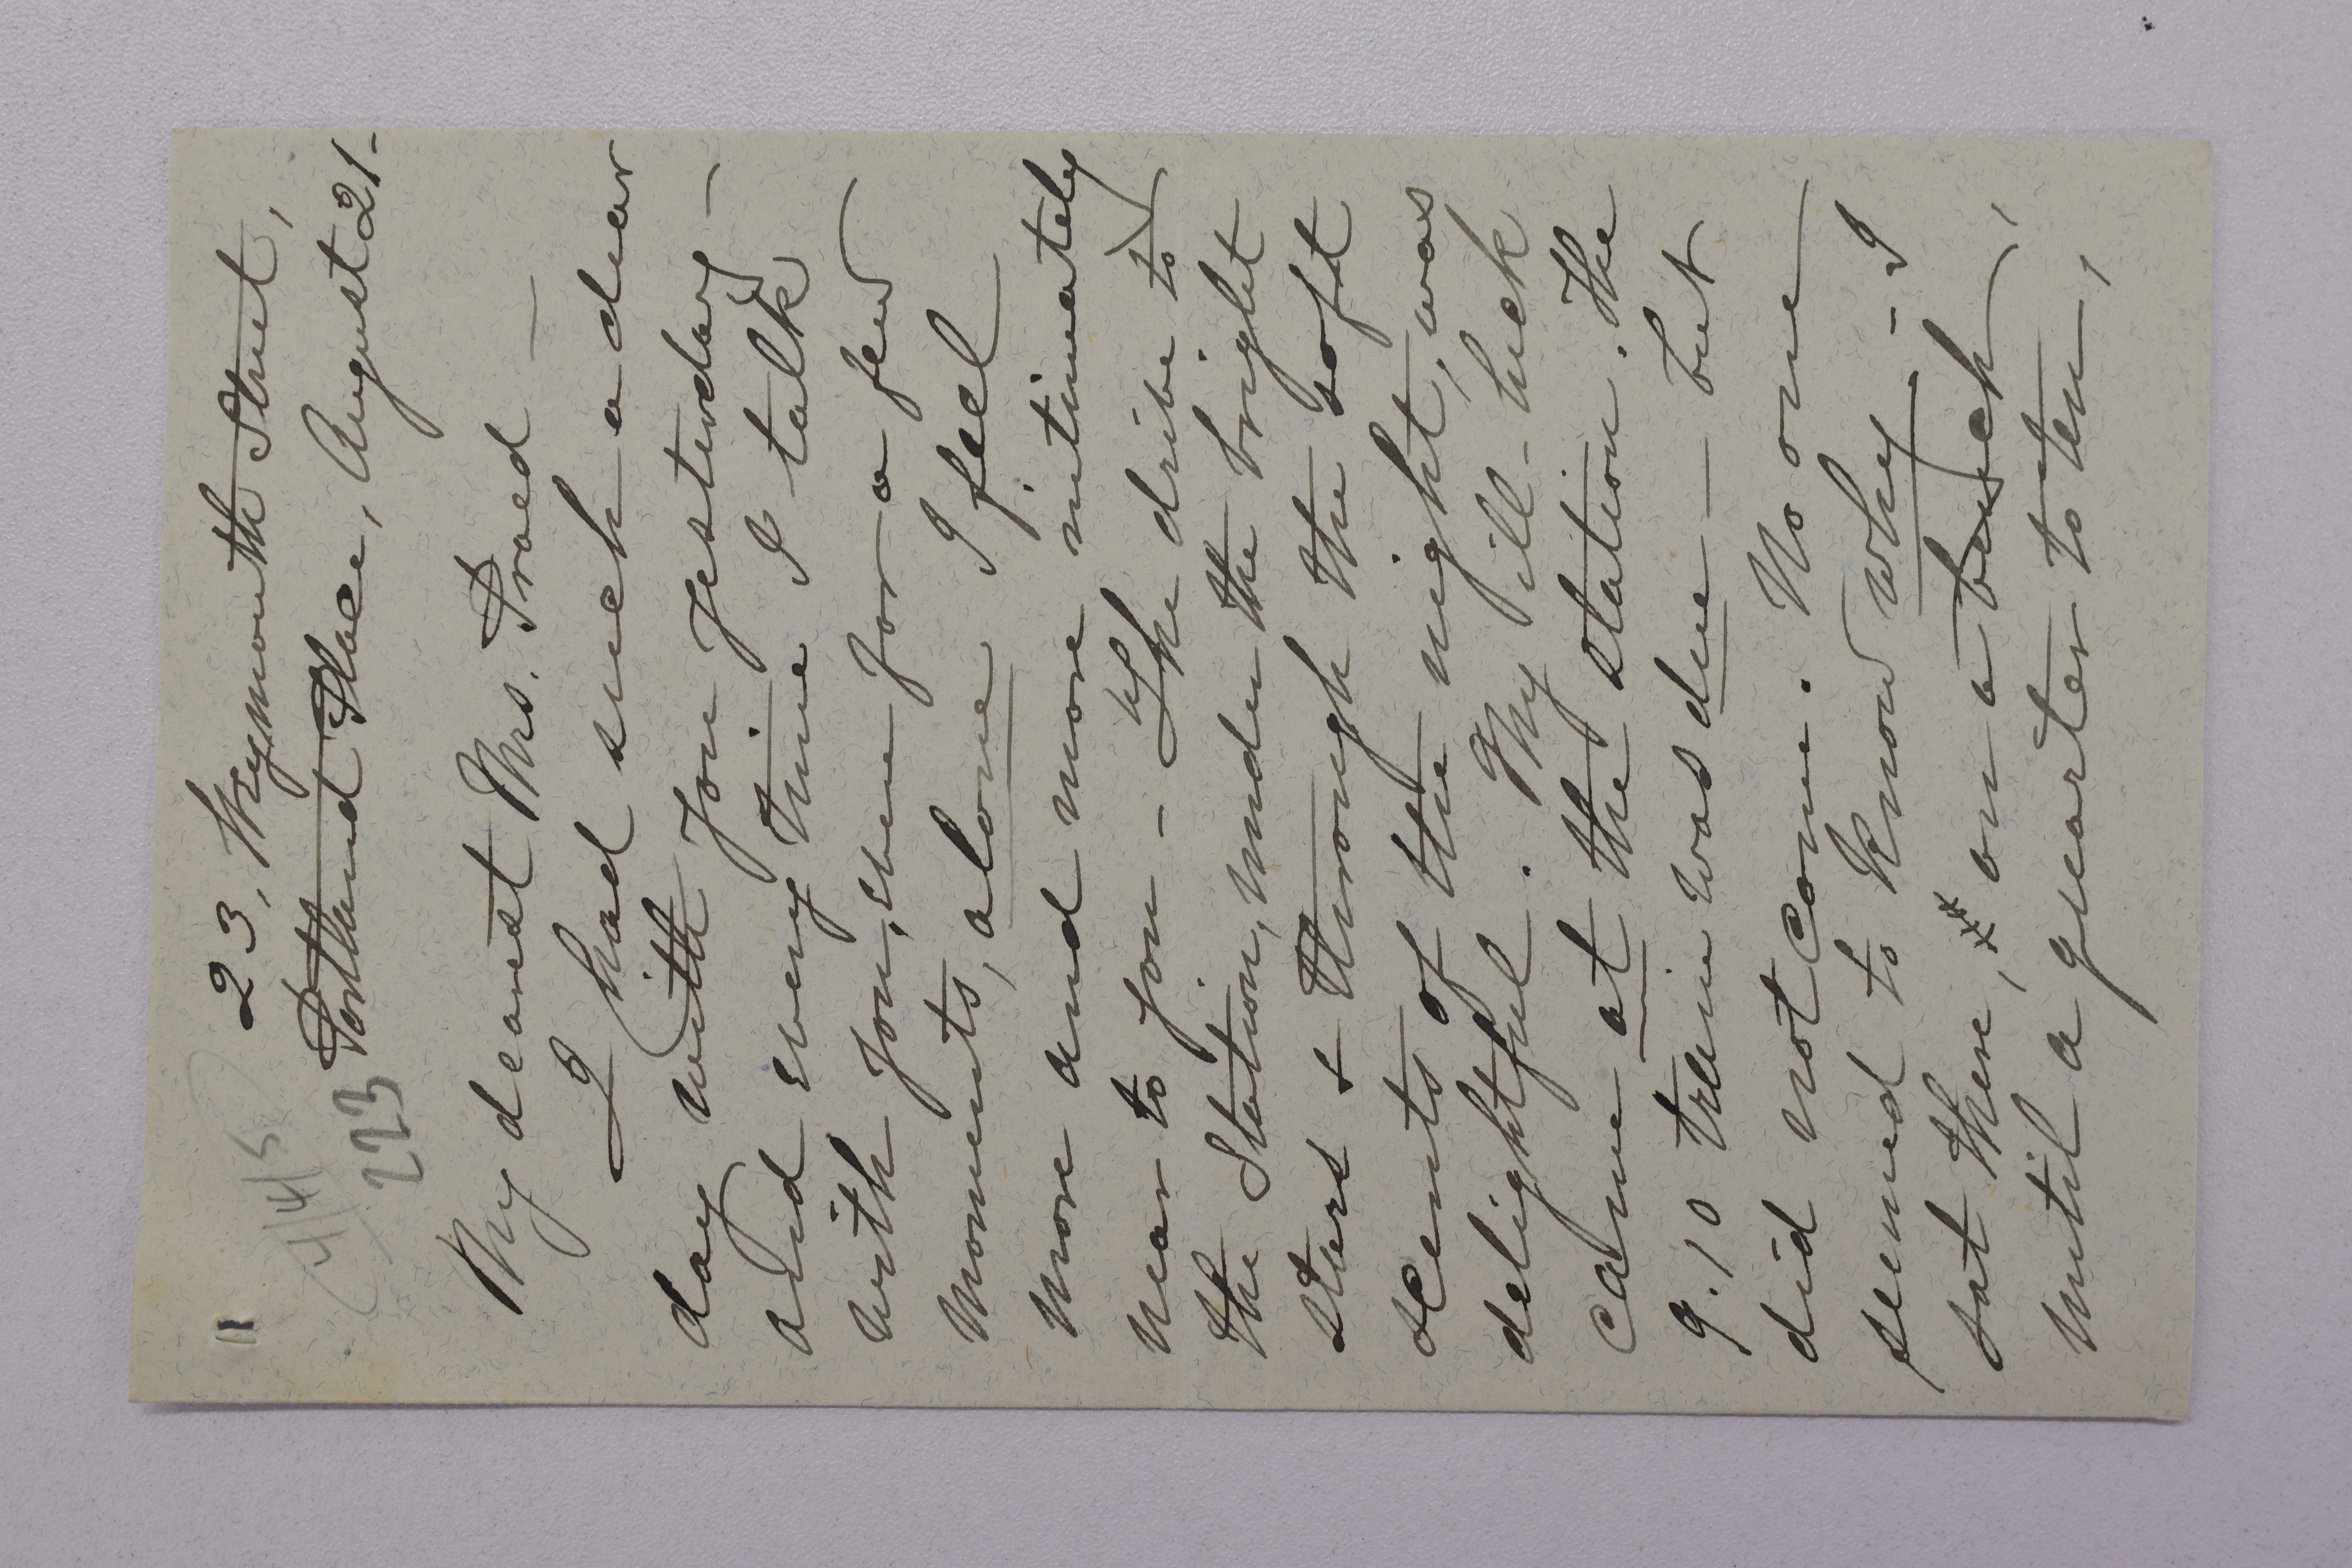 (4/4/5)
223
23, Weymouth Street,
Portland Place, August 21-
My dearest Mrs. Praed —
I had such a dear
day with you yesterday —
and every time I talk
with you, even for a few
moments, alone I feel
more and more intimately
near to you - The drive to
the Station, under the bright
stars & through the soft
scents of the night, was
delightful. My ill-luck
came at the station. The
9.10 train was due — but
did not come. No one
seemed to know why - I
sat there, on a bench,
until a quarter to ten,